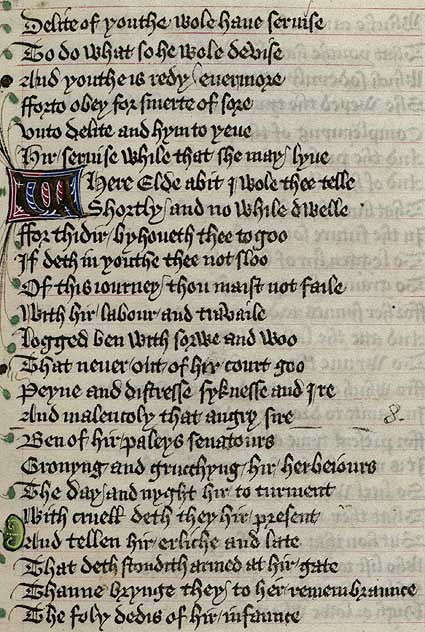 Delite of youthe wole haue seruise
To do what so he wole devise
And youthe is redy / evermore
fforto obey for smerte of sore
vnto delite and hym to yeue
Hir / seruise while that she may / lyue
Where Elde abit j wole thee telle
Shortly / and no while dwelle
ffor thidir / byhoueth thee to goo
If deth in youthe thee not sloo
Of this iourney / thou maist not faile
With hir / labour and travaile
Logged ben with sorwe and woo
That never / out of hir / court goo
Peyne and distresse syknesse and Jre
And malencoly that angry sire
8.
Ben of hir / paleys senatours
Gronyng and grucchyng hir / herbeiours
The day / and nyght hir to turment
With cruell deth they hir / present
And tellen hir / erliche and late
That deth stondith armed at hir / gate
Thanne brynge they / to her remembraunce
The foly dedis of hir / infaunce